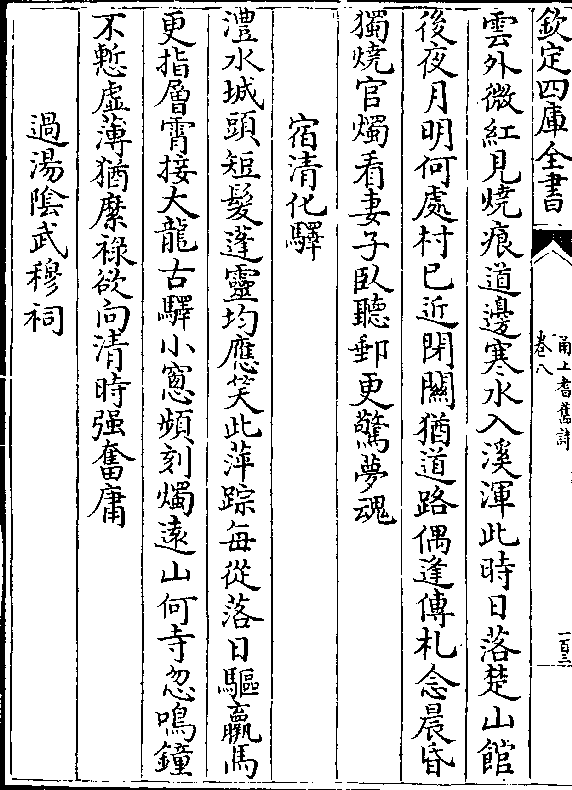 欽定四庫全書
甬上耆舊詩
卷八
一百三
雲外微紅見燒痕道邊寒水入溪渾此時日落楚山館
後夜月明何處村已近閉關猶道路偶逢傳札念晨昏
獨燒官燭看妻子臥聽郵更驚夢魂
宿清化驛
澧水城頭短髮蓬靈均應笑此萍踪每從落日驅羸馬
更指層霄接大龍古驛小窓頻刻燭遠山何寺忽鳴鐘
不慙虛薄猶縻祿欲向清時强奮庸
過湯陰武穆祠